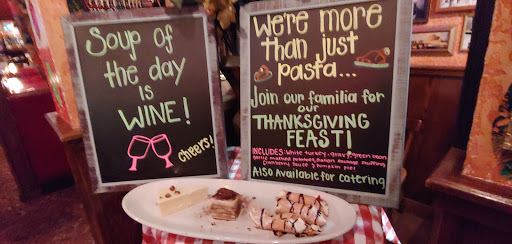 Soup of
the day
is
WINE!
cheers!
We're more
than just
pasta...
Join our familia for
our
THANKSGIVING
FEAST!
INCLUDES: White turkey, gravy, green beans
garlic mashed potatoes, Italian sausage stuffing
cranberry sauce & pumpkin pie!
Also Available for catering